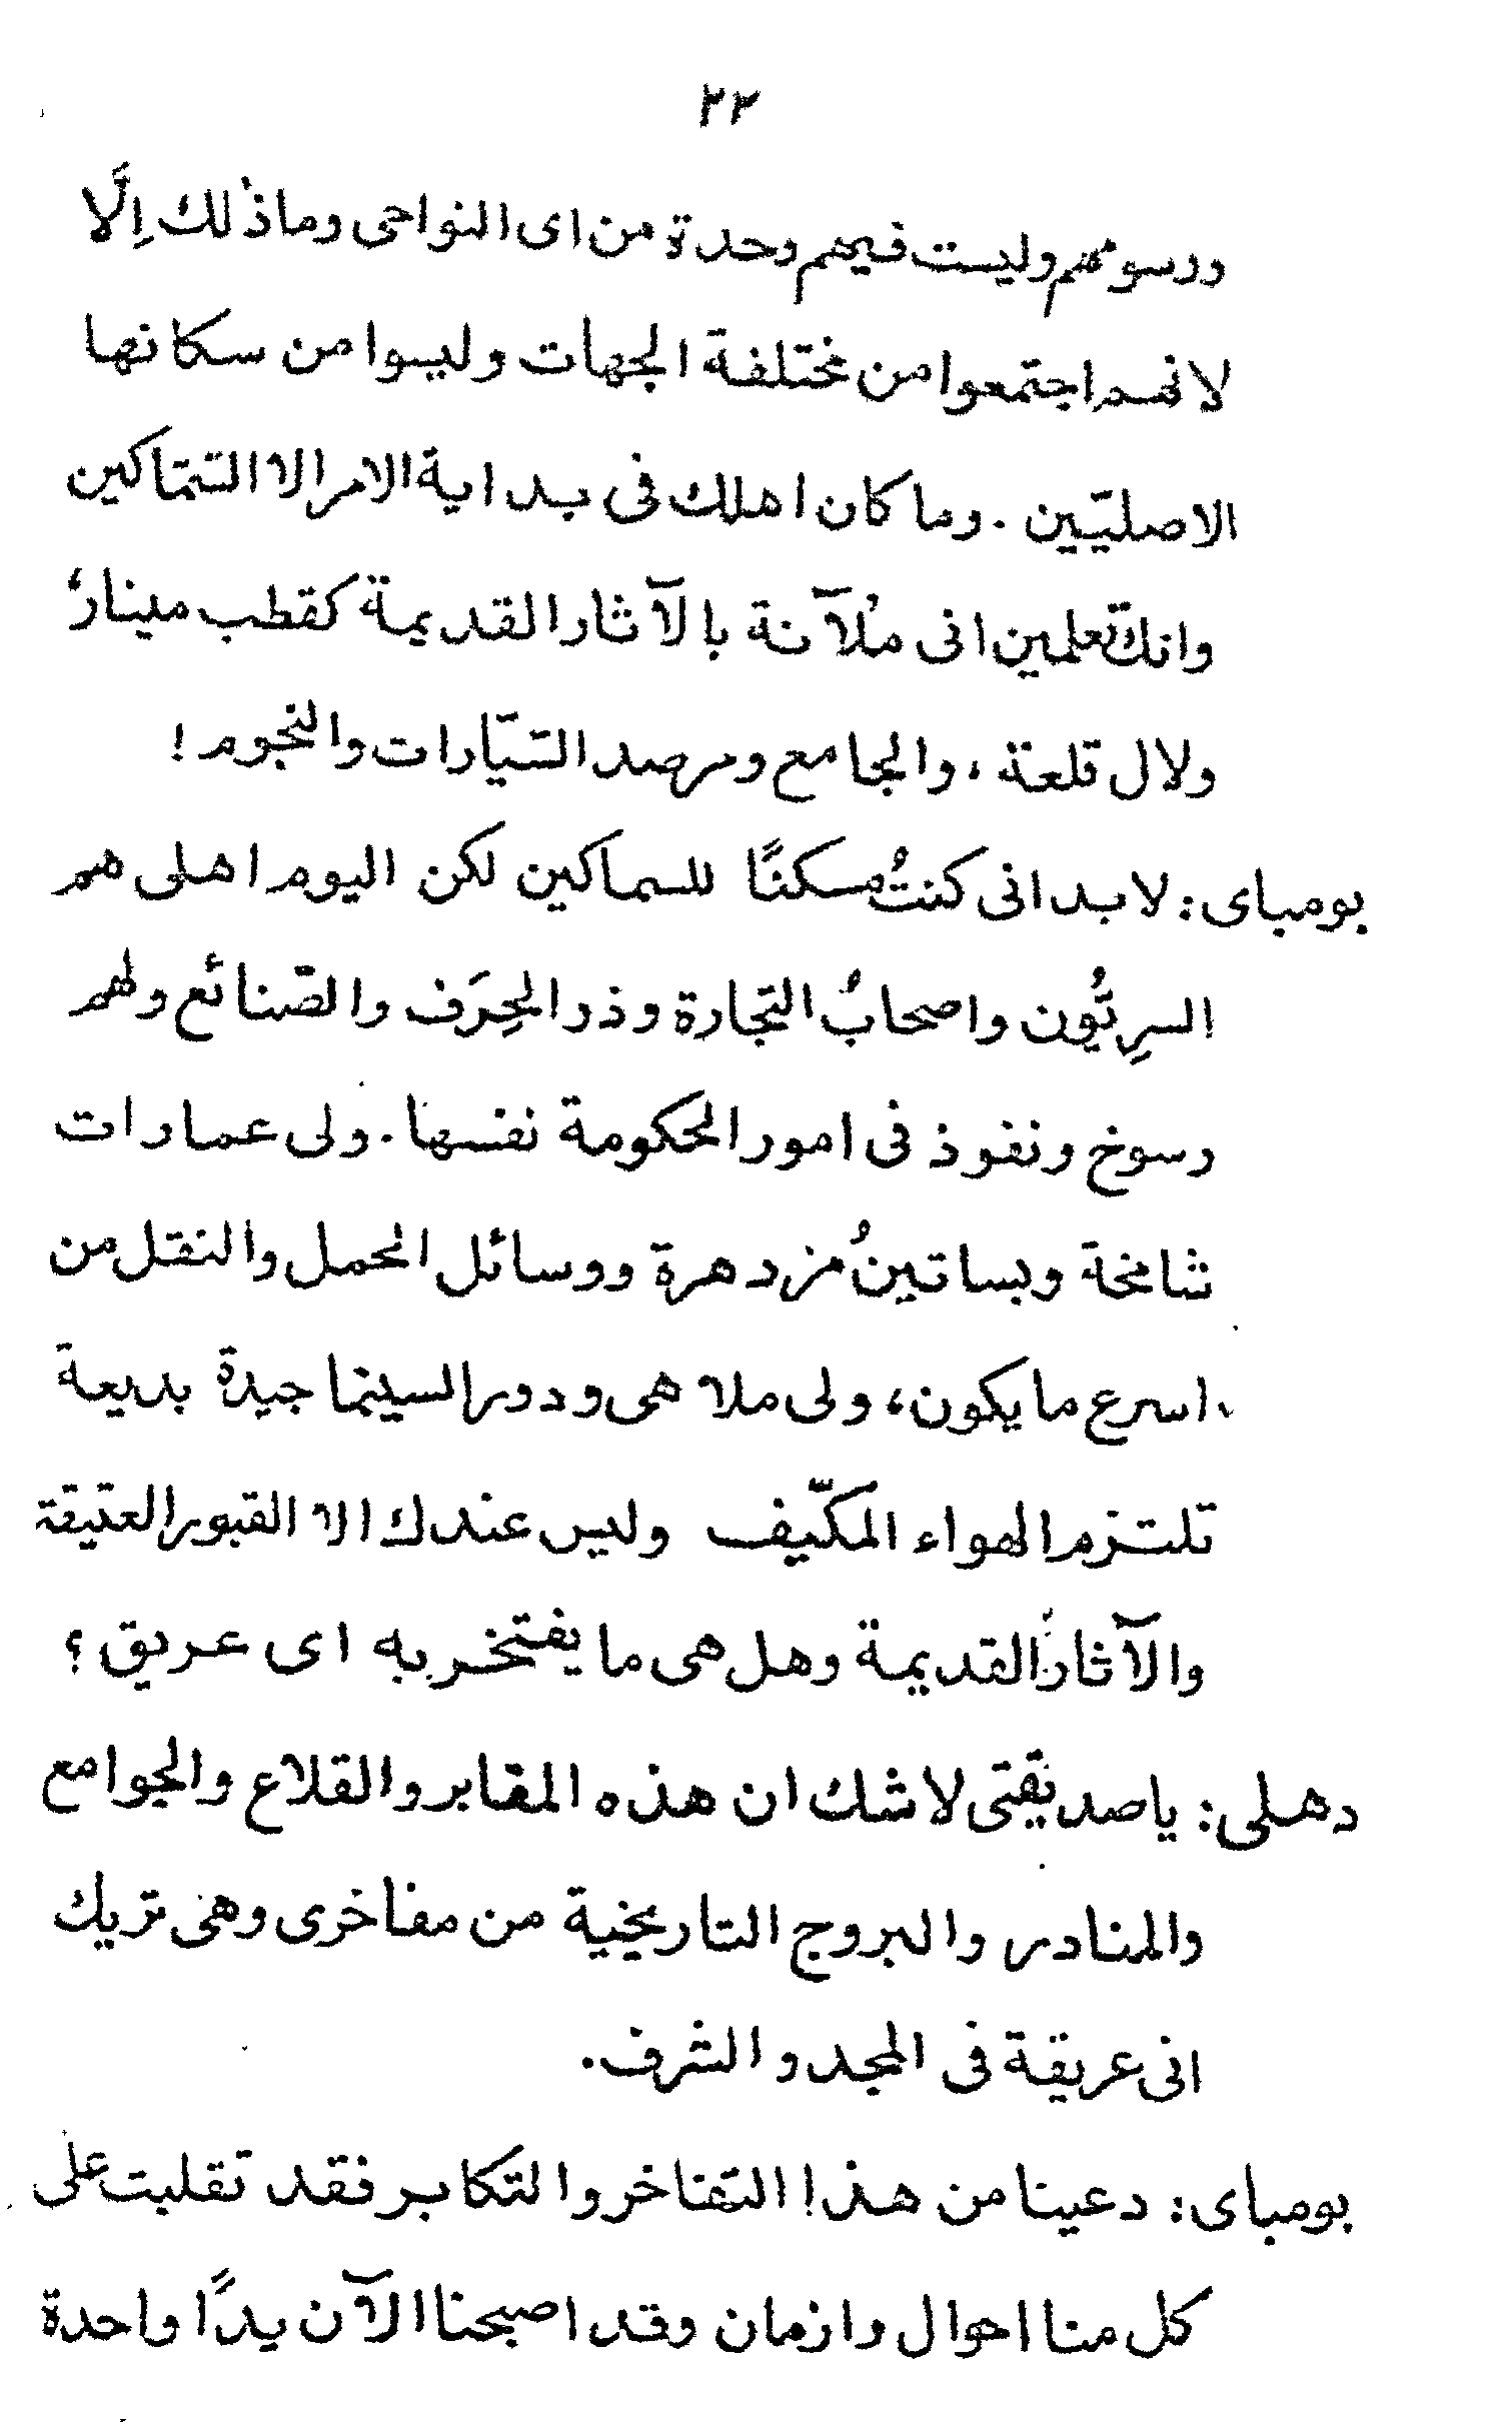 ٢٢
ورسومهم وليست فيهم وحدة من اى النواحى وماذلك اِلّا
لانهم اجتمعوا من مختلفة الجهات وليسوا من سكانها
الاصليّين . وما كان اهلك فى بداية الامر الا السّماكين
وانك تعلمين انى مُلآنة بالآثار القديمة كقطب مينار،
ولال قلعة ، والجامع ومرصد السّيّارات والنجوم !
بومباى : لابد انى كنتُ مسكنًا للسماكين لكن اليوم اهلى هم
السرِيُّون واصحابُ التجارة وذر الحِرَف والصّنائع ولهم
رسوخ ونفوذ فى امور الحكومة نفسها . ولى عمارات
شامخة وبساتينُ مزدهرة ووسائل الحمل والنقل من
اسرع ما يكون ، ولى ملاهى ودور السينما جيدة بديعة
تلتزم الهواء المكيّف وليس عندك الا القبور العتيقة
والآثار القديمة وهل هى ما يفتخر به اى عريق ؟
دهلى : ياصديقتى لاشك ان هذه المقابر والقلاع والجوامع
والمنادر والبروج التاريخية من مفاخرى وهى تريك
انى عريقة فى المجد والشرف .
بومباى : دعينا من هذا التفاخر والتكابر فقد تقلبت على
كل منا احوال وازمان وقد اصبحنا الآن يدًا واحدة